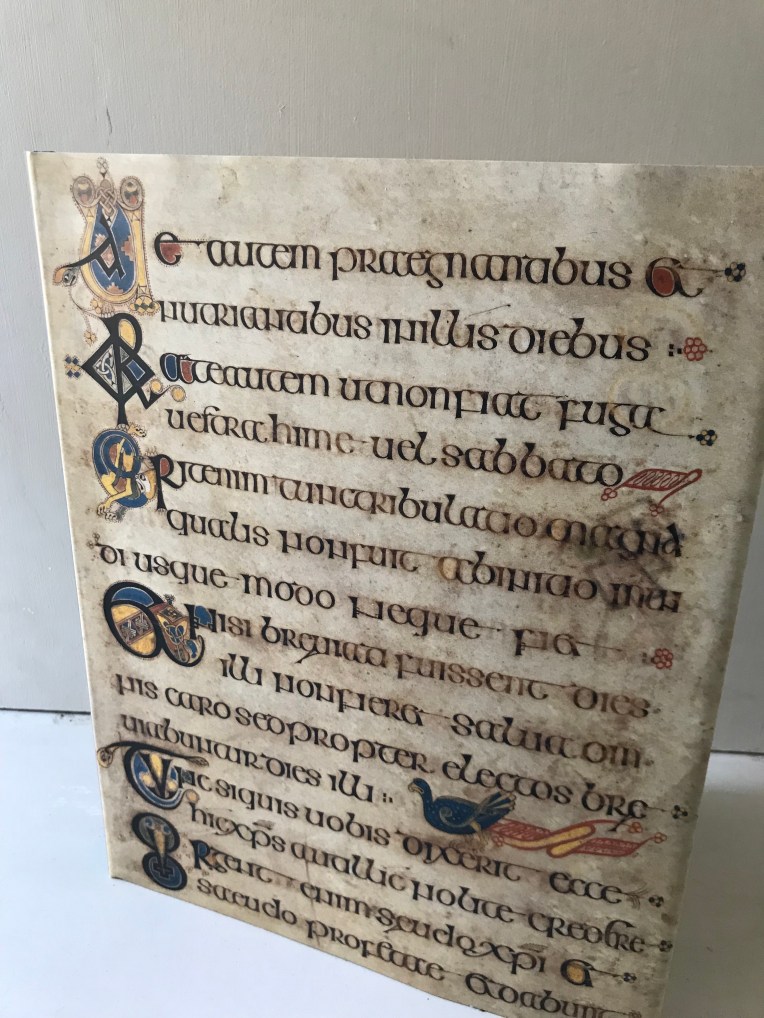 Uae autem praegnantibus et
nutrientibus in illis diebus
Orate autem ut non fiat fuga
uestra hime uel sabbato
Erit enim tunc tribulatio magna
qualis non fuit ab initio mun
di usque modo neque fiet
Et nisi breuiati fuissent dies
illi non fieret salua om
nis caro sed propter electos bre
uiabuntur dies illi
Tunc si quis uobis dixerit ecce
hic xps aut illic nolite credere
Surgent enim seudo xpi et
seudo profetae et dabunt